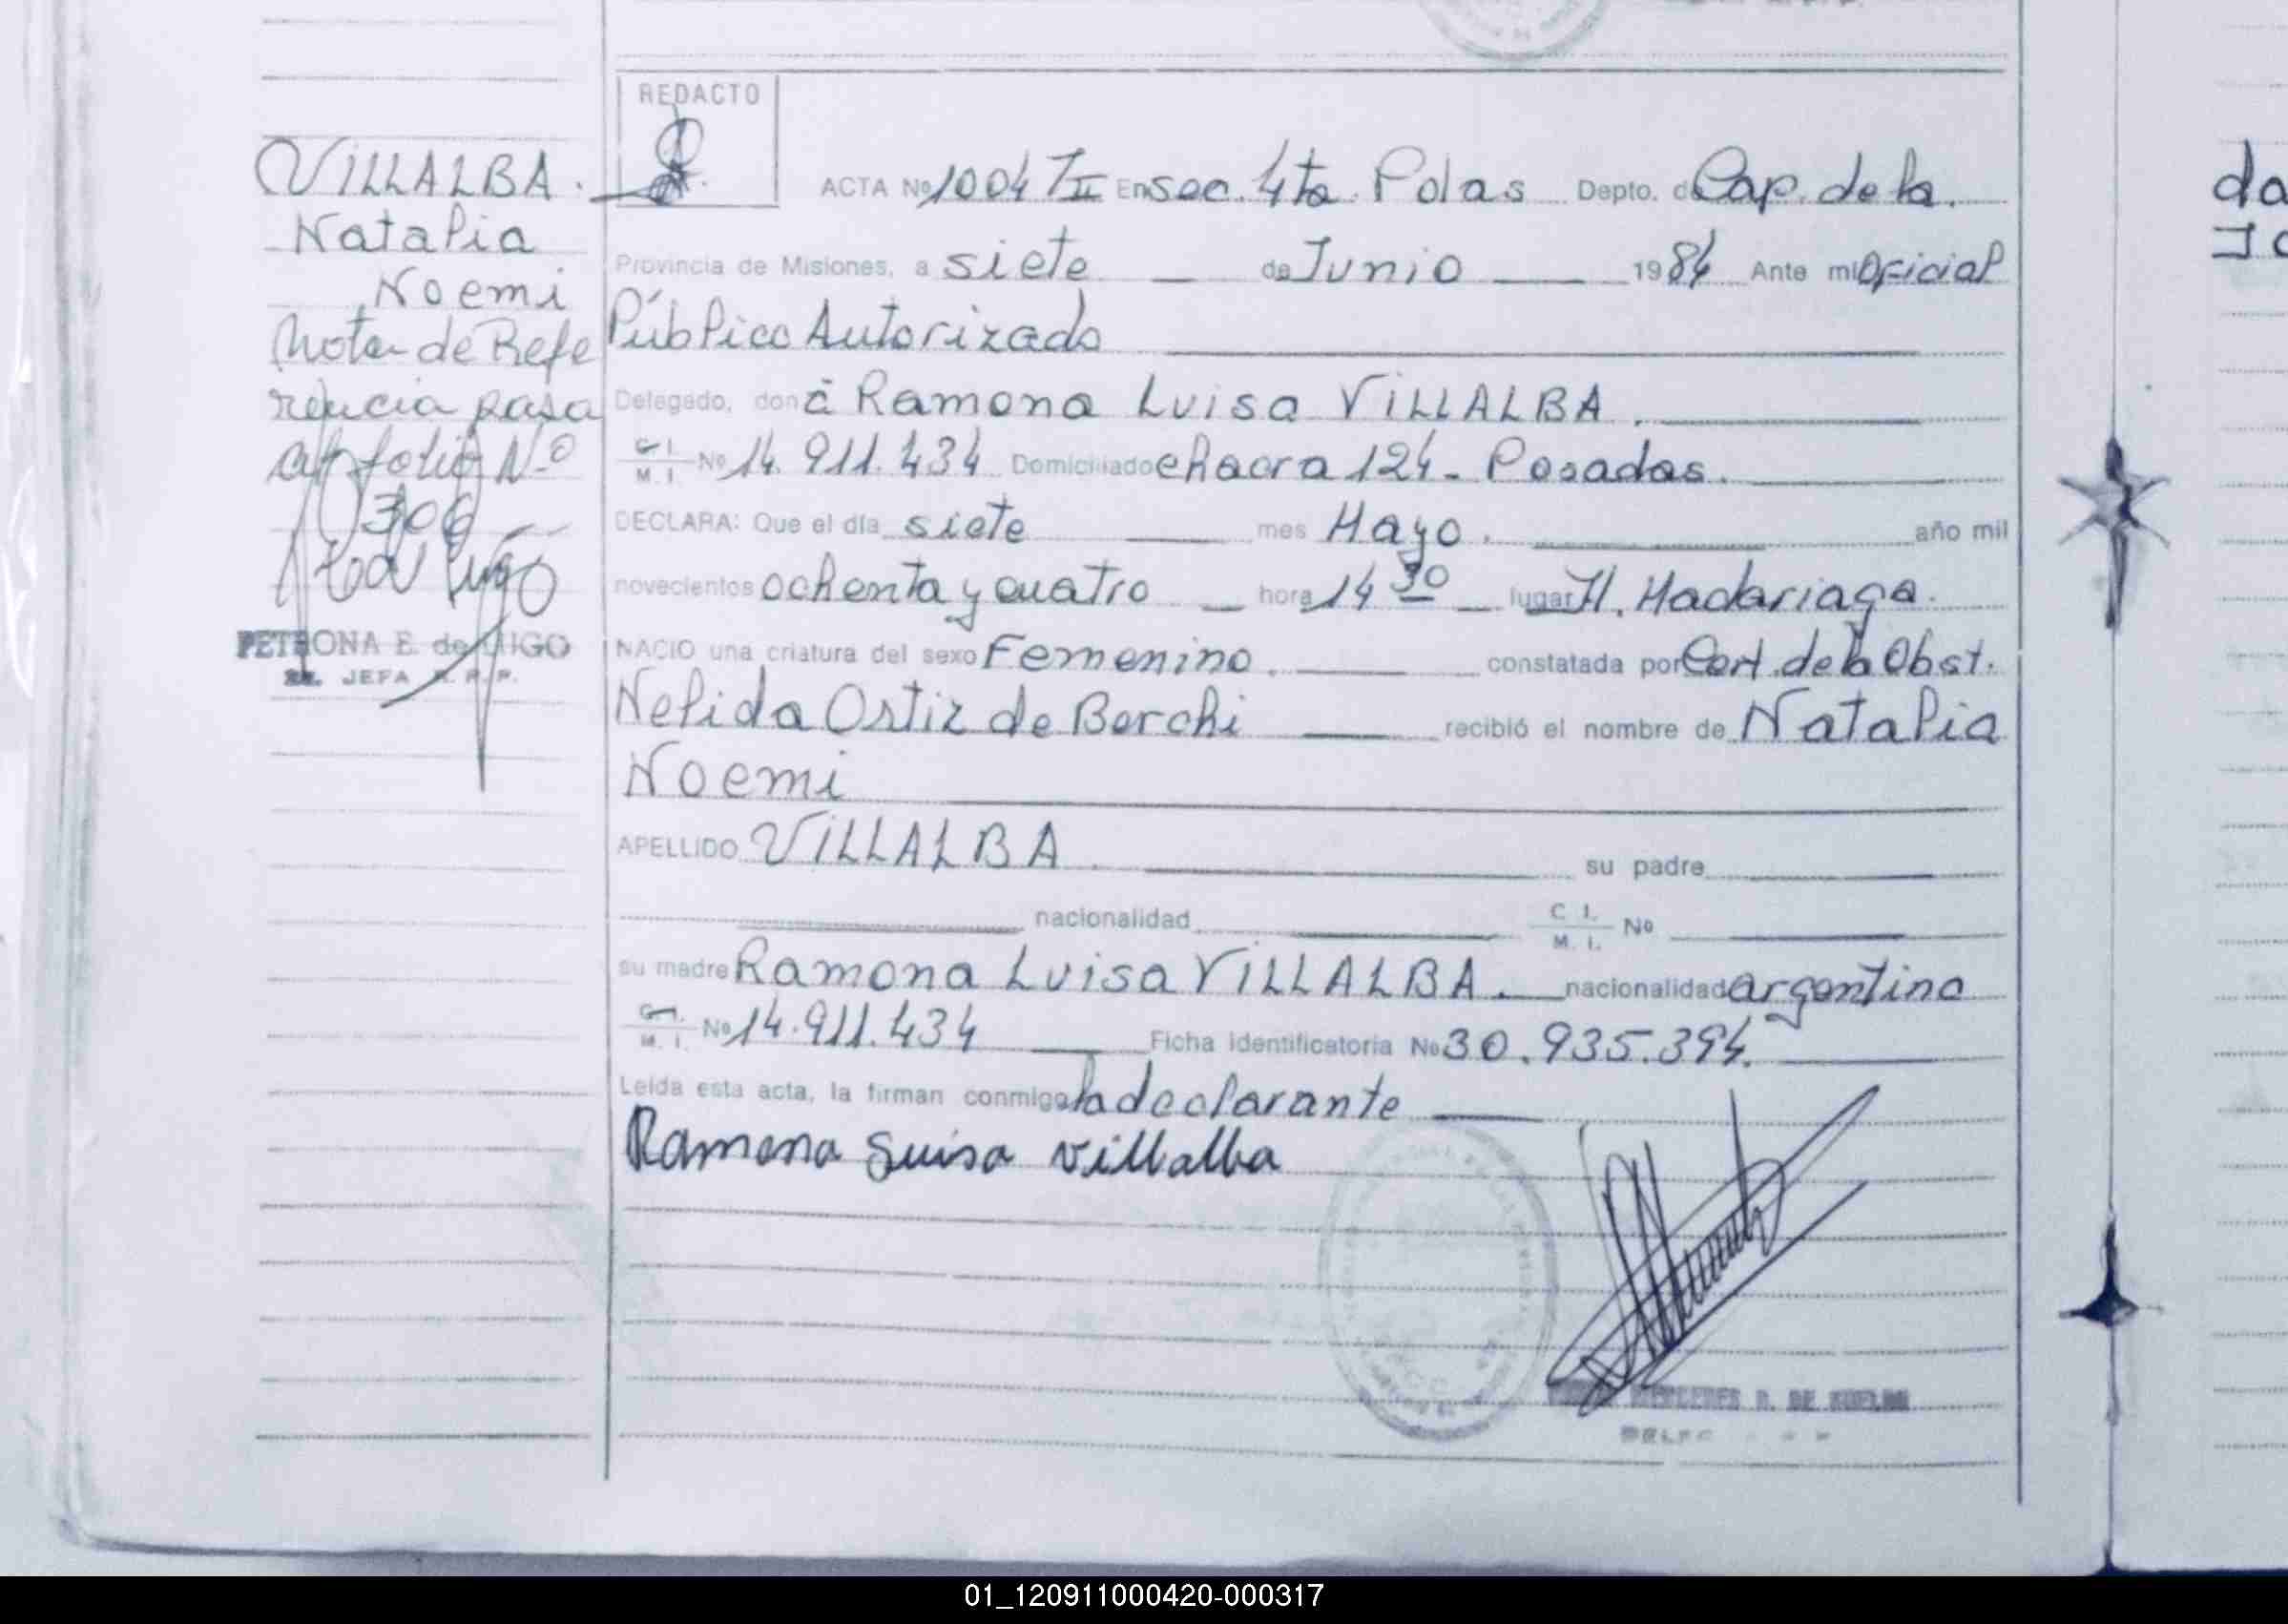 REDACTO
VILLALBA.
Natalia
Noemi
Nota de Refe
rencia pasa
al folio Nº
306
PETRONA E. de LUGO
JEFA R. P. P.
ACTA Nº 1004 TII En sec. 4ta Pdas Depto. de Cap. de la.
Provincia de Misiones, a siete de Junio 1984 Ante mi Oficial
Público Autorizado
Delegado, don ã Ramona Luisa VILLALBA.
C. I. M. I. Nº 14.911.434 Domiciliado chacra 124 - Posadas.
DECLARA: Que el día siete mes Mayo. año mil
novecientos ochenta y cuatro hora 14 30 lugar H. Madariaga.
NACIO una criatura del sexo Femenino. constatada por Cert. de la Obst.
Nelida Ortiz de Borchi recibió el nombre de Natalia
Noemi
APELLIDO VILLALBA su padre
nacionalidad C. I. M. I. Nº
su madre Ramona Luisa VILLALBA. nacionalidad argentina
C. I. M. I. Nº 14.911.434 Ficha identificatoria Nº 30.935.394.
Leída esta acta, la firman conmigo la declarante
Ramona Luisa Villalba
MERCEDES R. DE
da
01_120911000420-000317